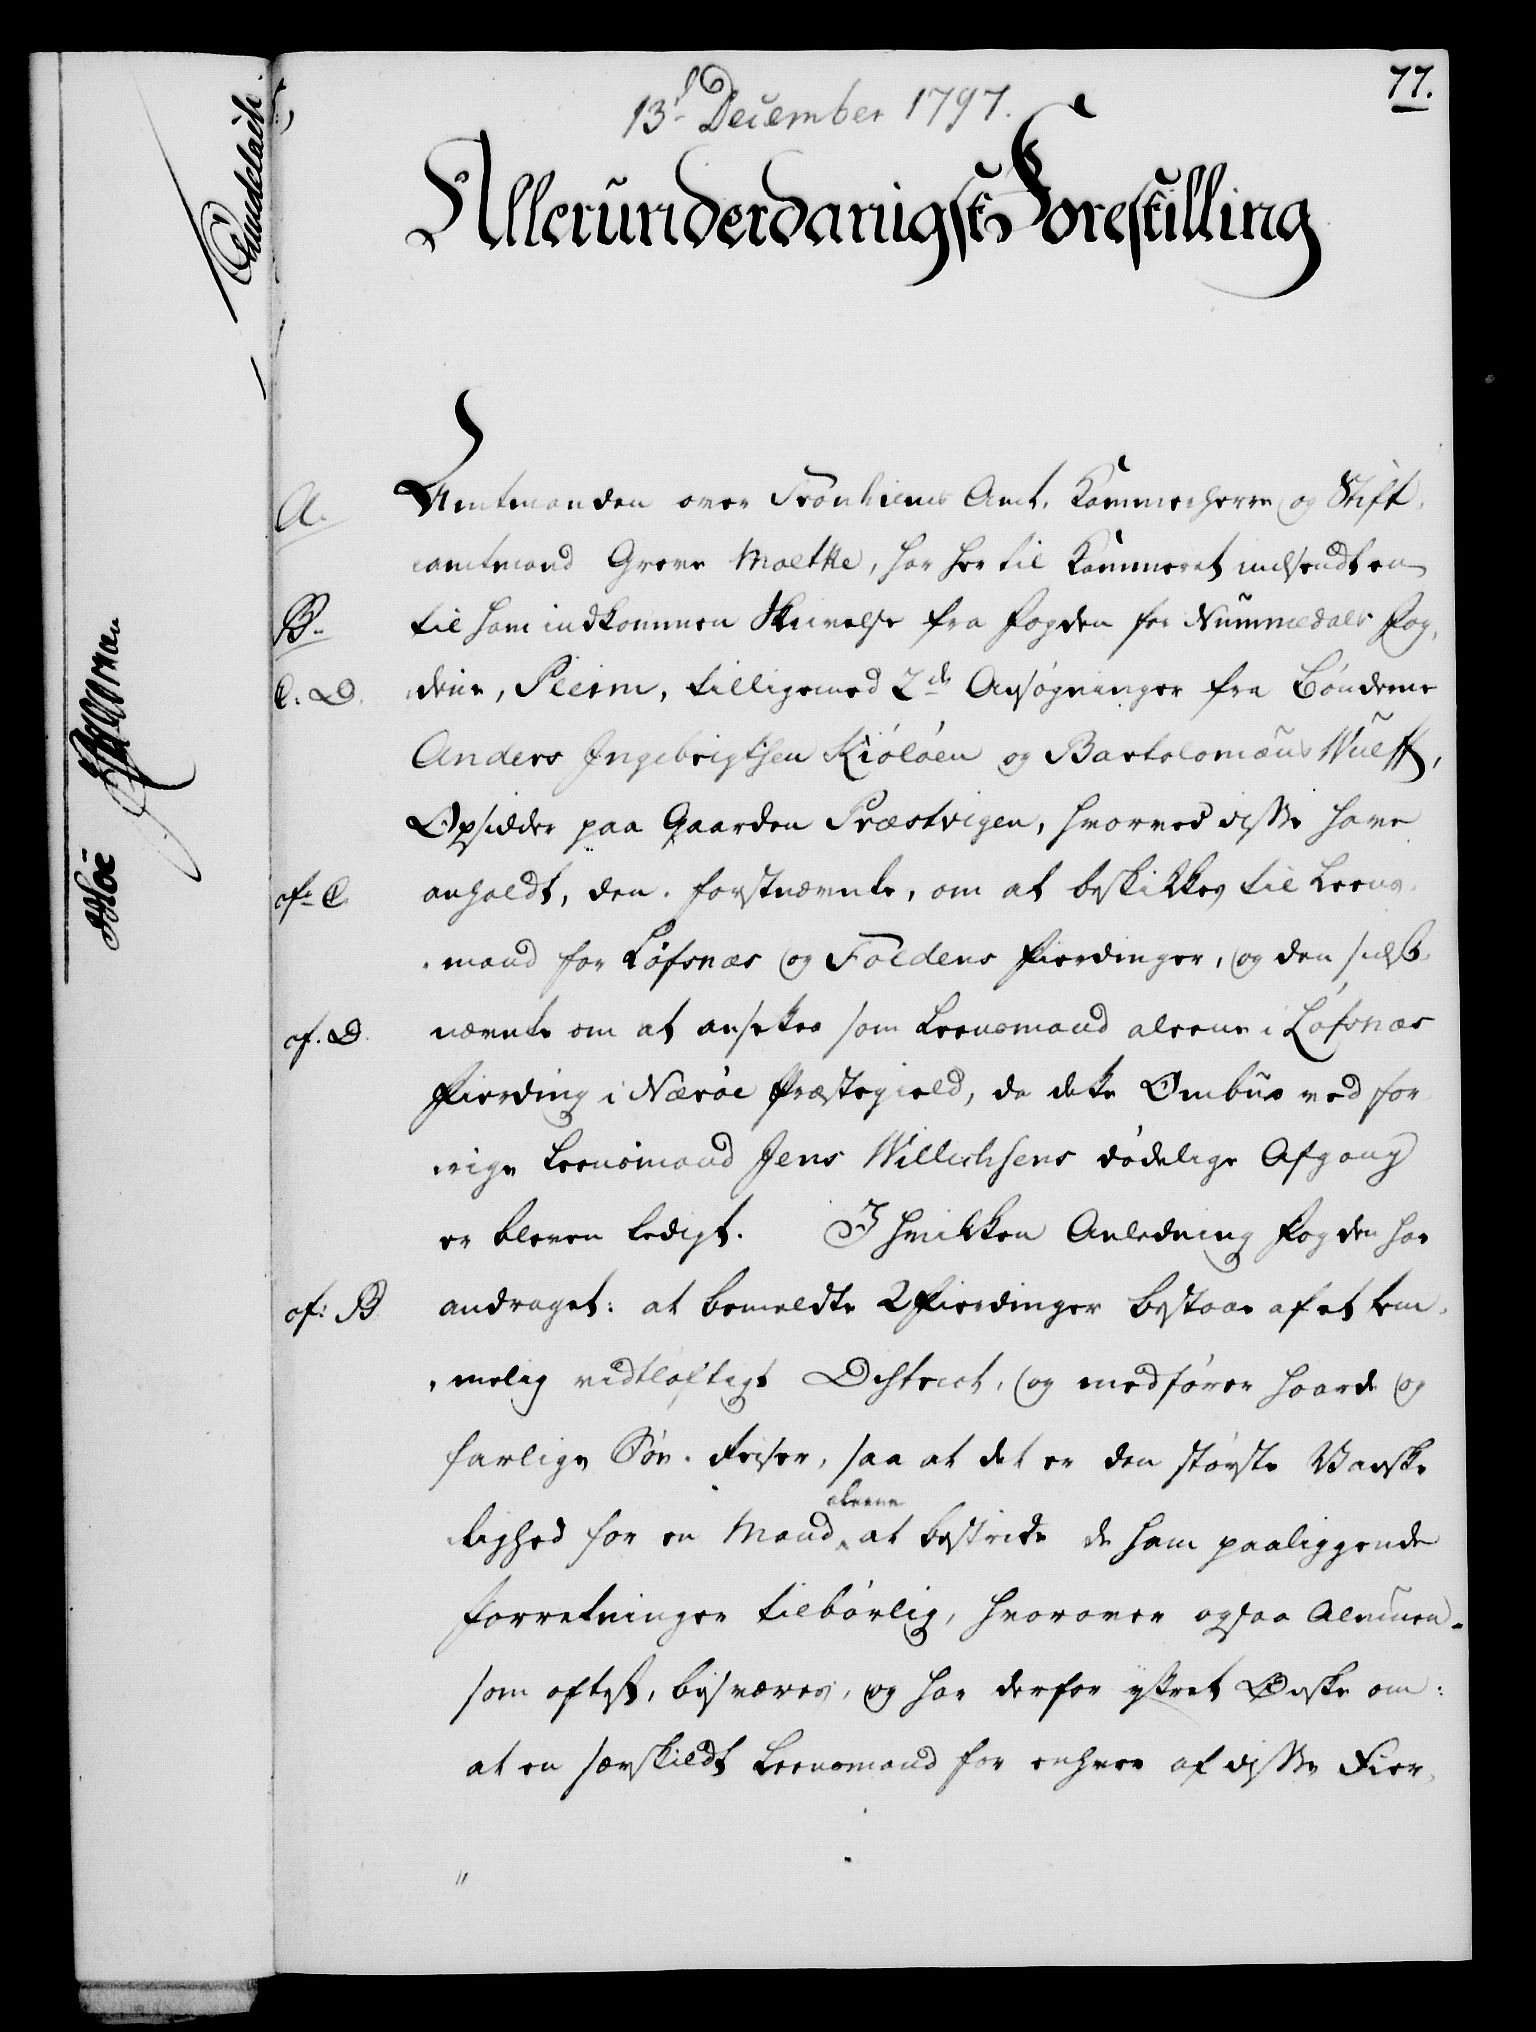 77.
13d December 1797.
Allerunderdanigst Forestilling
A. Amtmanden over Tronhiems Amt, Kammerherre og Stift,
amtmand Greve Moltke, har her til Kammeret indsendt en
B. til ham indkommen Skrivelse fra Fogden for Nummedals Fog,
C. D. derie, Pleim, tilligemed 2de Ansøgninger fra Bønderne
Anders Ingebrigtsen Kiöloen og Bartolomæus Wulff,
Opsidder paa Gaarden Præstvigen, hvorved disse have
af C. anholdt, den førstnævnte, om at beskikkes til Leens,
mand for Løfsnæs og Foldens Fierdinger, og den sidst
af. D. nævnte om at ansettes som Leensmand aleene i Løfsnæs
Fierding i Nærøe Præstegield, da dette Ombud ved for,
rige Leensmand Jens Willichsens dødelige Afgang
er bleven ledigt. I hvilken Anledning Fogden har
af: B andraget: at bemeldte 2 Fierdinger bestaar af et tem,
melig vidtløftigt District, og medfører haarde og
farlige Søe-Reiser, saa at det er den største Vanske
lighed for en Mand aleene at bestride de ham paaliggende
Forretninger tilbørlig, hvorover ogsaa Almuen
som oftest, besværes, og har derfor yttret Ønske om:
at en særskildt Leensmand for enhver af disse Fier,